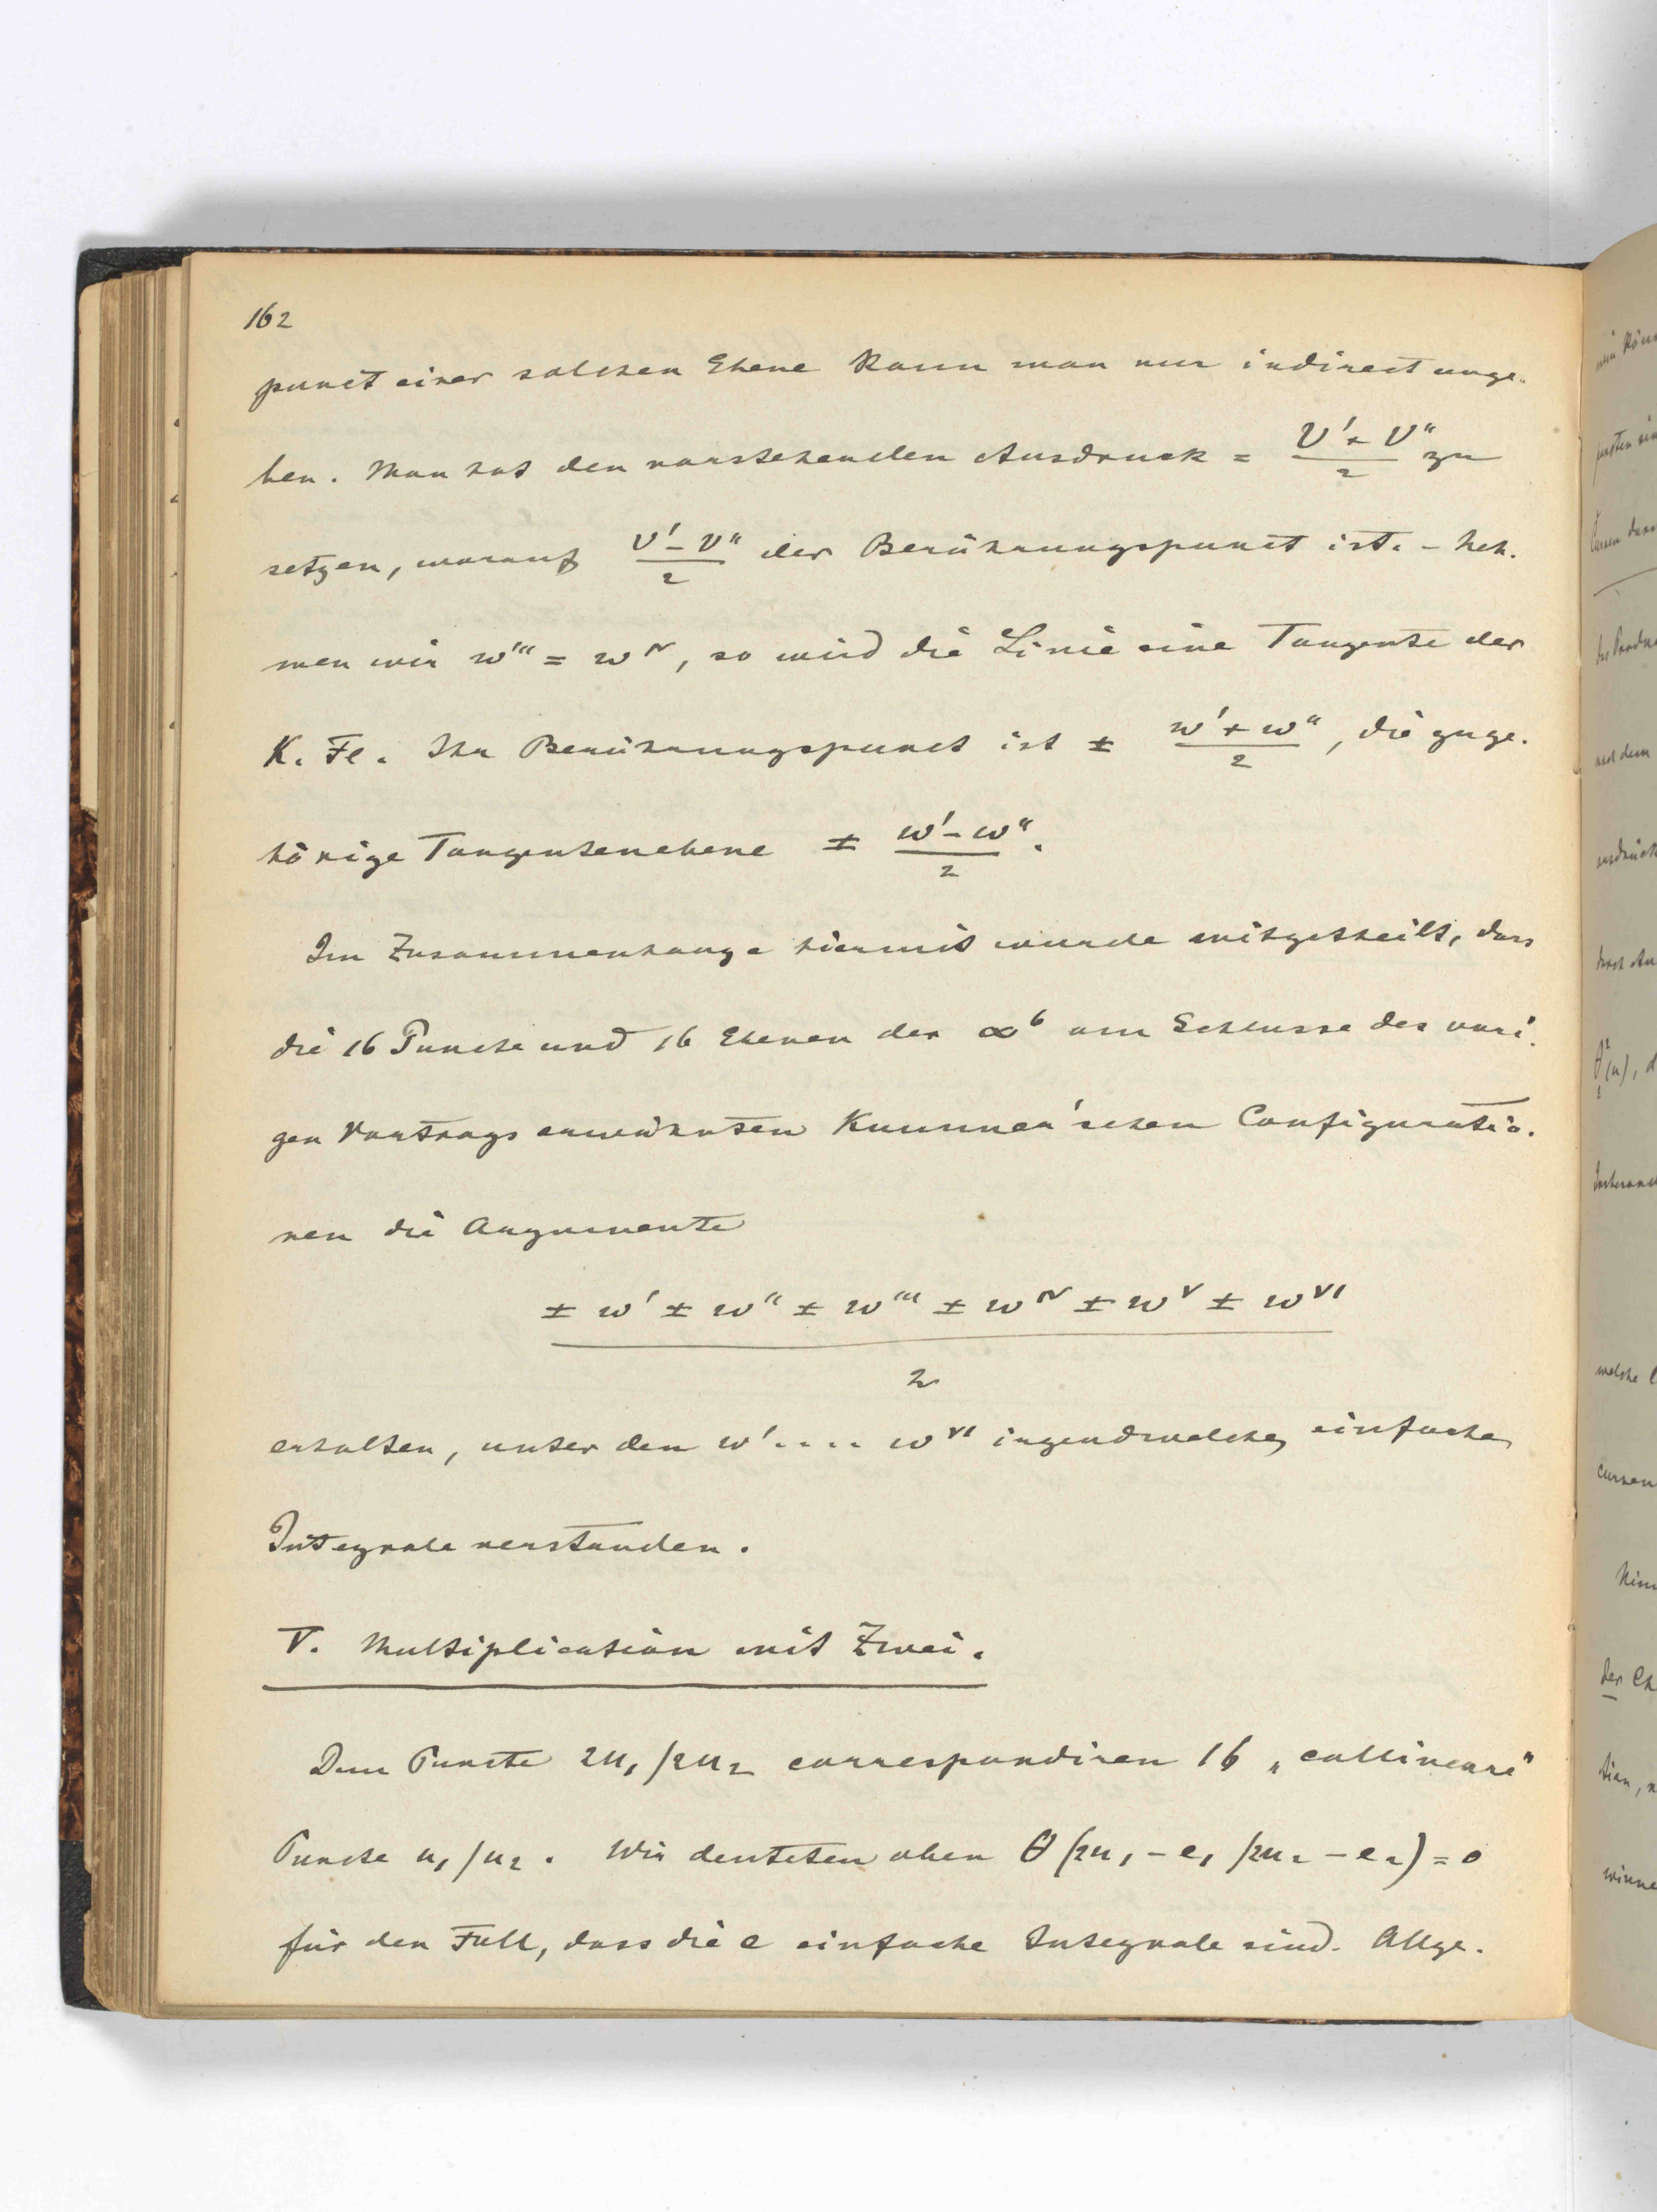 162
punct einer solchen Ebene kann man nur indirect ange-
ben. Man hat den vorstehenden Ausdruck = (v' + v'')/2 zu
setzen, worauf (v' - v'')/2 der Berührungspunct ist. - Neh-
men wir w''' = w^IV, so wird die Linie eine Tangente der
K. Fl. Ihr Berührungspunct ist ± (w' + w'')/2, die zuge-
hörige Tangentenebene ± (w' - w'')/2.
Im Zusammenhange hiermit wurde mitgetheilt, dass
die 16 Puncte und 16 Ebenen der ∞^6 am Schlusse des vori-
gen Vortrags erwähnten Kummer'schen Configuratio-
nen die Argumente
(± w' ± w'' ± w''' ± w^IV ± w^V ± w^VI)/2
erhalten, unter den w' .... w^VI irgendwelche einfache
Integrale verstanden.
V. Multiplication mit Zwei.
Dem Puncte 2u₁/2u₂ correspondiren 16 „collineare"
Puncte u₁/u₂. Wir deuteten oben θ(2u₁ - e₁/2u₂ - e₂) = 0
für den Fall, dass die e einfache Integrale sind. Allge-